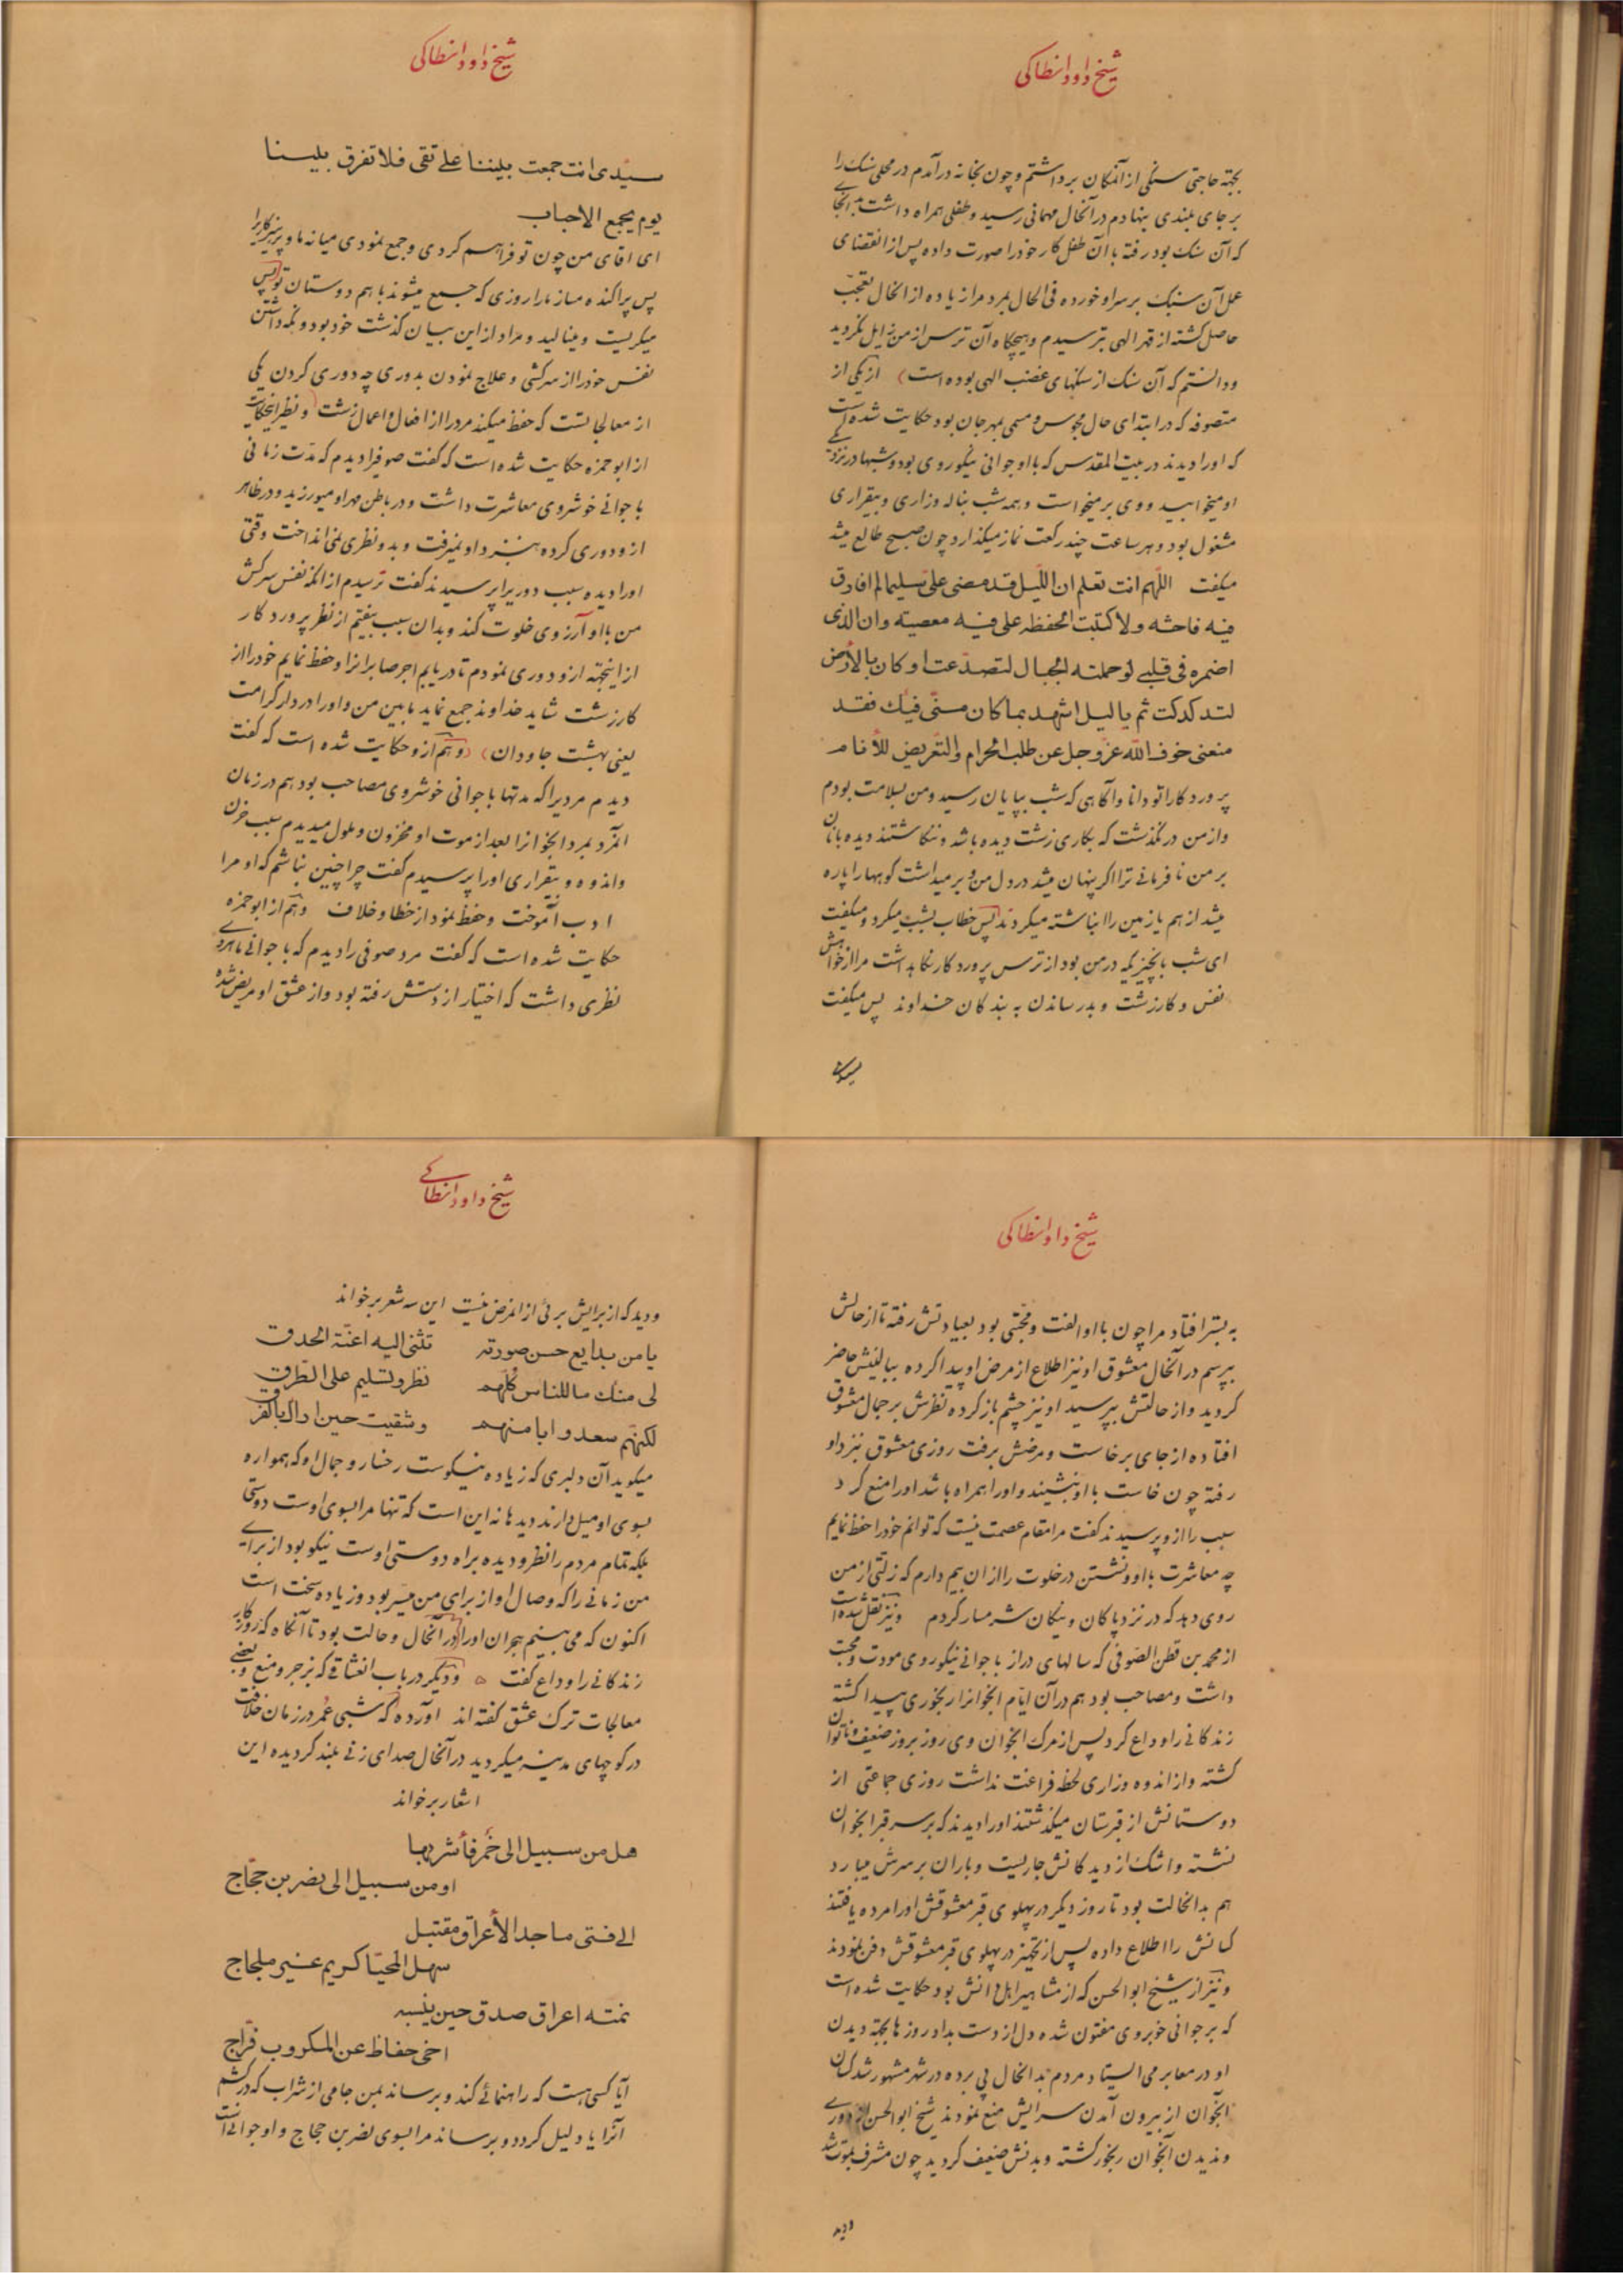 شیخ داود انطاکی
بجهته حاجتی سنگی از آنمکان برداشتم و چون بخانه درآمدم در محلی سنک را
بر جای بلندی بنهادم در آنحال مهمانی رسید و طفلی همراه داشت بدانجا
که آن سنک بود رفته با آن طفل کار خود را صورت داده پس از انقضای
عمل آن سنک بر سر او خورده فی الحال بمرد مرا زیاده از انحال تعجب
حاصل کشته از قهر الهی بترسیدم و هیچکاه آن ترس از من زایل نکردید
و دانستم که آن سنک از سنکهای غضب الهی بوده است از یکی از
متصوفه که در ابتدای حال مجوس و مسمی بمهرجان بود حکایت شده است
که او را دیدند در بیت المقدس که با او جوانی نیکوروی بود و شبها در نزد
او میخوابید و وی برمیخواست و همه شب بناله و زاری و بیقراری
مشغول بود و هر ساعت چند رکعت نماز میکذارد چون صبح طالع میشد
میکفت اللهم انت تعلم ان اللیل قد مضی علی سلیما لم اقارف
فیه فاحشه ولا کتبت الحفظه علی فیه معصیته وان الذی
اضمره فی قلبی لو حملته الجبال لتصدعت او کان بالأرض
لتدکدکت ثم یا لیل اشهد بما کان منی فیك فقد
منعنی خوف الله عز وجل عن طلب الحرام والتعریض للأنام
پروردکارا تو دانا و آکاهی که شب بپایان رسید و من بسلامت بودم
و از من در نکذشت که بکاری زشت دیده باشد و ننکاشتند دیده بانان
بر من نافرمانی ترا اکر پنهان میشد در دل من و بر میداشت کوهها را پاره
میشد از هم یا زمین را انباشته میکردند پس خطاب بشب میکرد و میکفت
ای شب بانچیزیکه در من بود از ترس پروردکار نکاه بداشت مرا از خواهش
نفس و کار زشت و بد رساندن به بندکان خداوند پس میکفت
شیخ داود انطاکی
سیدی انت جمعت بیننا علی تقی فلا تفرق بیننا
یوم یجمع الاحباب
ای اقای من چون تو فراهم کردی و جمع نمودی میانه ما و پرهیزکاریرا
پس پراکنده مساز ما را روزی که جمع میشوند باهم دوستان تو پس
میکریست و مینالید و مراد از این بیان کذشت خود بود و نکهداشتن
نفس خود را از سرکشی و علاج نمودن بدوری چه دوری کردن یکی
از معالجاتست که حفظ میکند مرد را از افعال و اعمال زشت و نظیر اینحکایت
از ابو حمزه حکایت شده است که کفت صوفیرا دیدم که مدت زمانی
با جوانی خوشروی معاشرت داشت و در باطن مهر او میورزید و در ظاهر
از و دوری کرده بنزد او نمیرفت و بدو نظری نمی انداخت وقتی
او را دیده سبب دوریرا پرسیدند کفت ترسیدم از انکه نفس سرکش
من با او آرزوی خلوت کند و بدان سبب بیفتم از نظر پروردکار
از اینجهته از و دوری نمودم تا دریابم اجر صابرانرا و حفظ نمایم خود را از
کار زشت شاید خداوند جمع نماید مابین من و او را در دار کرامت
یعنی بهشت جاودان و هم از و حکایت شده است که کفت
دیدم مردیرا که مدتها با جوانی خوشروی مصاحب بود هم در زمان
انمرد بمرد انجوانرا بعد از موت او محزون و ملول میدیدم سبب حزن
و اندوه و بیقراری او را پرسیدم کفت چرا چنین نباشم که او مرا
ادب آموخت و حفظ نمود از خطا و خلاف و هم از ابو حمزه
حکایت شده است که کفت مرد صوفی را دیدم که با جوانی ماهرو
نظری داشت که اختیار از دستش رفته بود و از عشق او مریض شده
شیخ داود انطاکی
به بستر افتاد مرا چون با او الفت و محبتی بود بعیادتش رفته تا از حالش
بپرسم در آنحال معشوق او نیز اطلاع از مرض او پیدا کرده ببالینش حاضر
کردید و از حالتش بپرسید او نیز چشم باز کرده نظرش بر جمال معشوق
افتاده از جای برخاست و مرضش برفت روزی معشوق نیز داو
رفته چون خاست با او بنشیند و او را همراه باشد او را منع کرد
سبب را از و پرسیدند کفت مرا مقام عصمت نیست که توانم خود را حفظ نمایم
چه معاشرت با او و نشستن در خلوت را از ان بیم دارم که زلتی از من
روی دهد که در نزد پاکان و نیکان شرمسار کردم و نیز نقل شده است
از محمد بن قطن الصوفی که سالهای دراز با جوانی نیکوروی مودت و محبت
داشت و مصاحب بود هم در آن ایام انجوانرا رنجوری پیدا کشته
زندکانی را وداع کرد پس از مرک انجوان وی روز بروز ضعیف و ناتوان
کشته و از اندوه و زاری لحظه فراغت نداشت روزی جماعتی از
دوستانش از قبرستان میکذشتند او را دیدند که بر سر قبر انجوان
نشسته و اشک از دیدکانش جاریست و باران بر سرش میبارد
هم بدانحالت بود تا روز دیکر در پهلوی قبر معشوقش او را مرده یافتند
کسانش را اطلاع داده پس از تجهیز در پهلوی قبر معشوقش دفن نمودند
و نیز از شیخ ابو الحسن که از مشاهیر اهل دانش بود حکایت شده است
که بر جوانی خوبروی مفتون شده دل از دست بداد روزها بجهته دیدن
او در معابر می ایستاد مردم بدانحال پی برده در شهر مشهور شد کسان
انجوان از بیرون آمدن سرایش منع نمودند شیخ ابو الحسن از دوری
و ندیدن آنجوان رنجور کشته و بدنش ضعیف کردید چون مشرف بموت شد
دید
شیخ داود انطاکی
و دید که از برایش برئی از انمرض نیست این سه شعر برخواند
یا من بدایع حسن صورته تثنی الیه اعنة الحدق
لی منك ما للناس کلهم نظر وتسلیم علی الطرق
لکنهم سعدوا بامنهم وشقیت حین اراك بالفرق
میکوید آن دلبری که زیاده نیکوست رخسار و جمال او که همواره
بسوی او میل دارند دیدها نه این است که تنها مرا بسوی اوست دوستی
بلکه تمام مردم را نظر و دیده براه دوستی اوست نیکو بود از برای
من زمانی را که وصال او از برای من میسر بود و زیاده سخت است
اکنون که می بینم هجران او را در آنحال و حالت بود تا آنکاه که روزکار
زندکانی را وداع کفت و دیکر در باب انعشاقی که بزجر و منع و بعضی
معالجات ترك عشق کفته اند آورده که شبی عمر در زمان خلافت
در کوچهای مدینه میکردید در آنحال صدای زنی بلند کردیده این
اشعار برخواند
هل من سبیل الی خمر فأشربها
او من سبیل الی نصر بن حجاج
الی فتی ماجد الأعراق مقتبل
سهل المحیا کریم غیر ملجاج
نمته اعراق صدق حین ینسبه
اخی حفاظ عن المکروب فراج
آیا کسی هست که راهنمائی کند و برساند بمن جامی از شراب که درکشم
آنرا یا دلیل کردد و برساند مرا بسوی نصر بن حجاج و او جوانی است